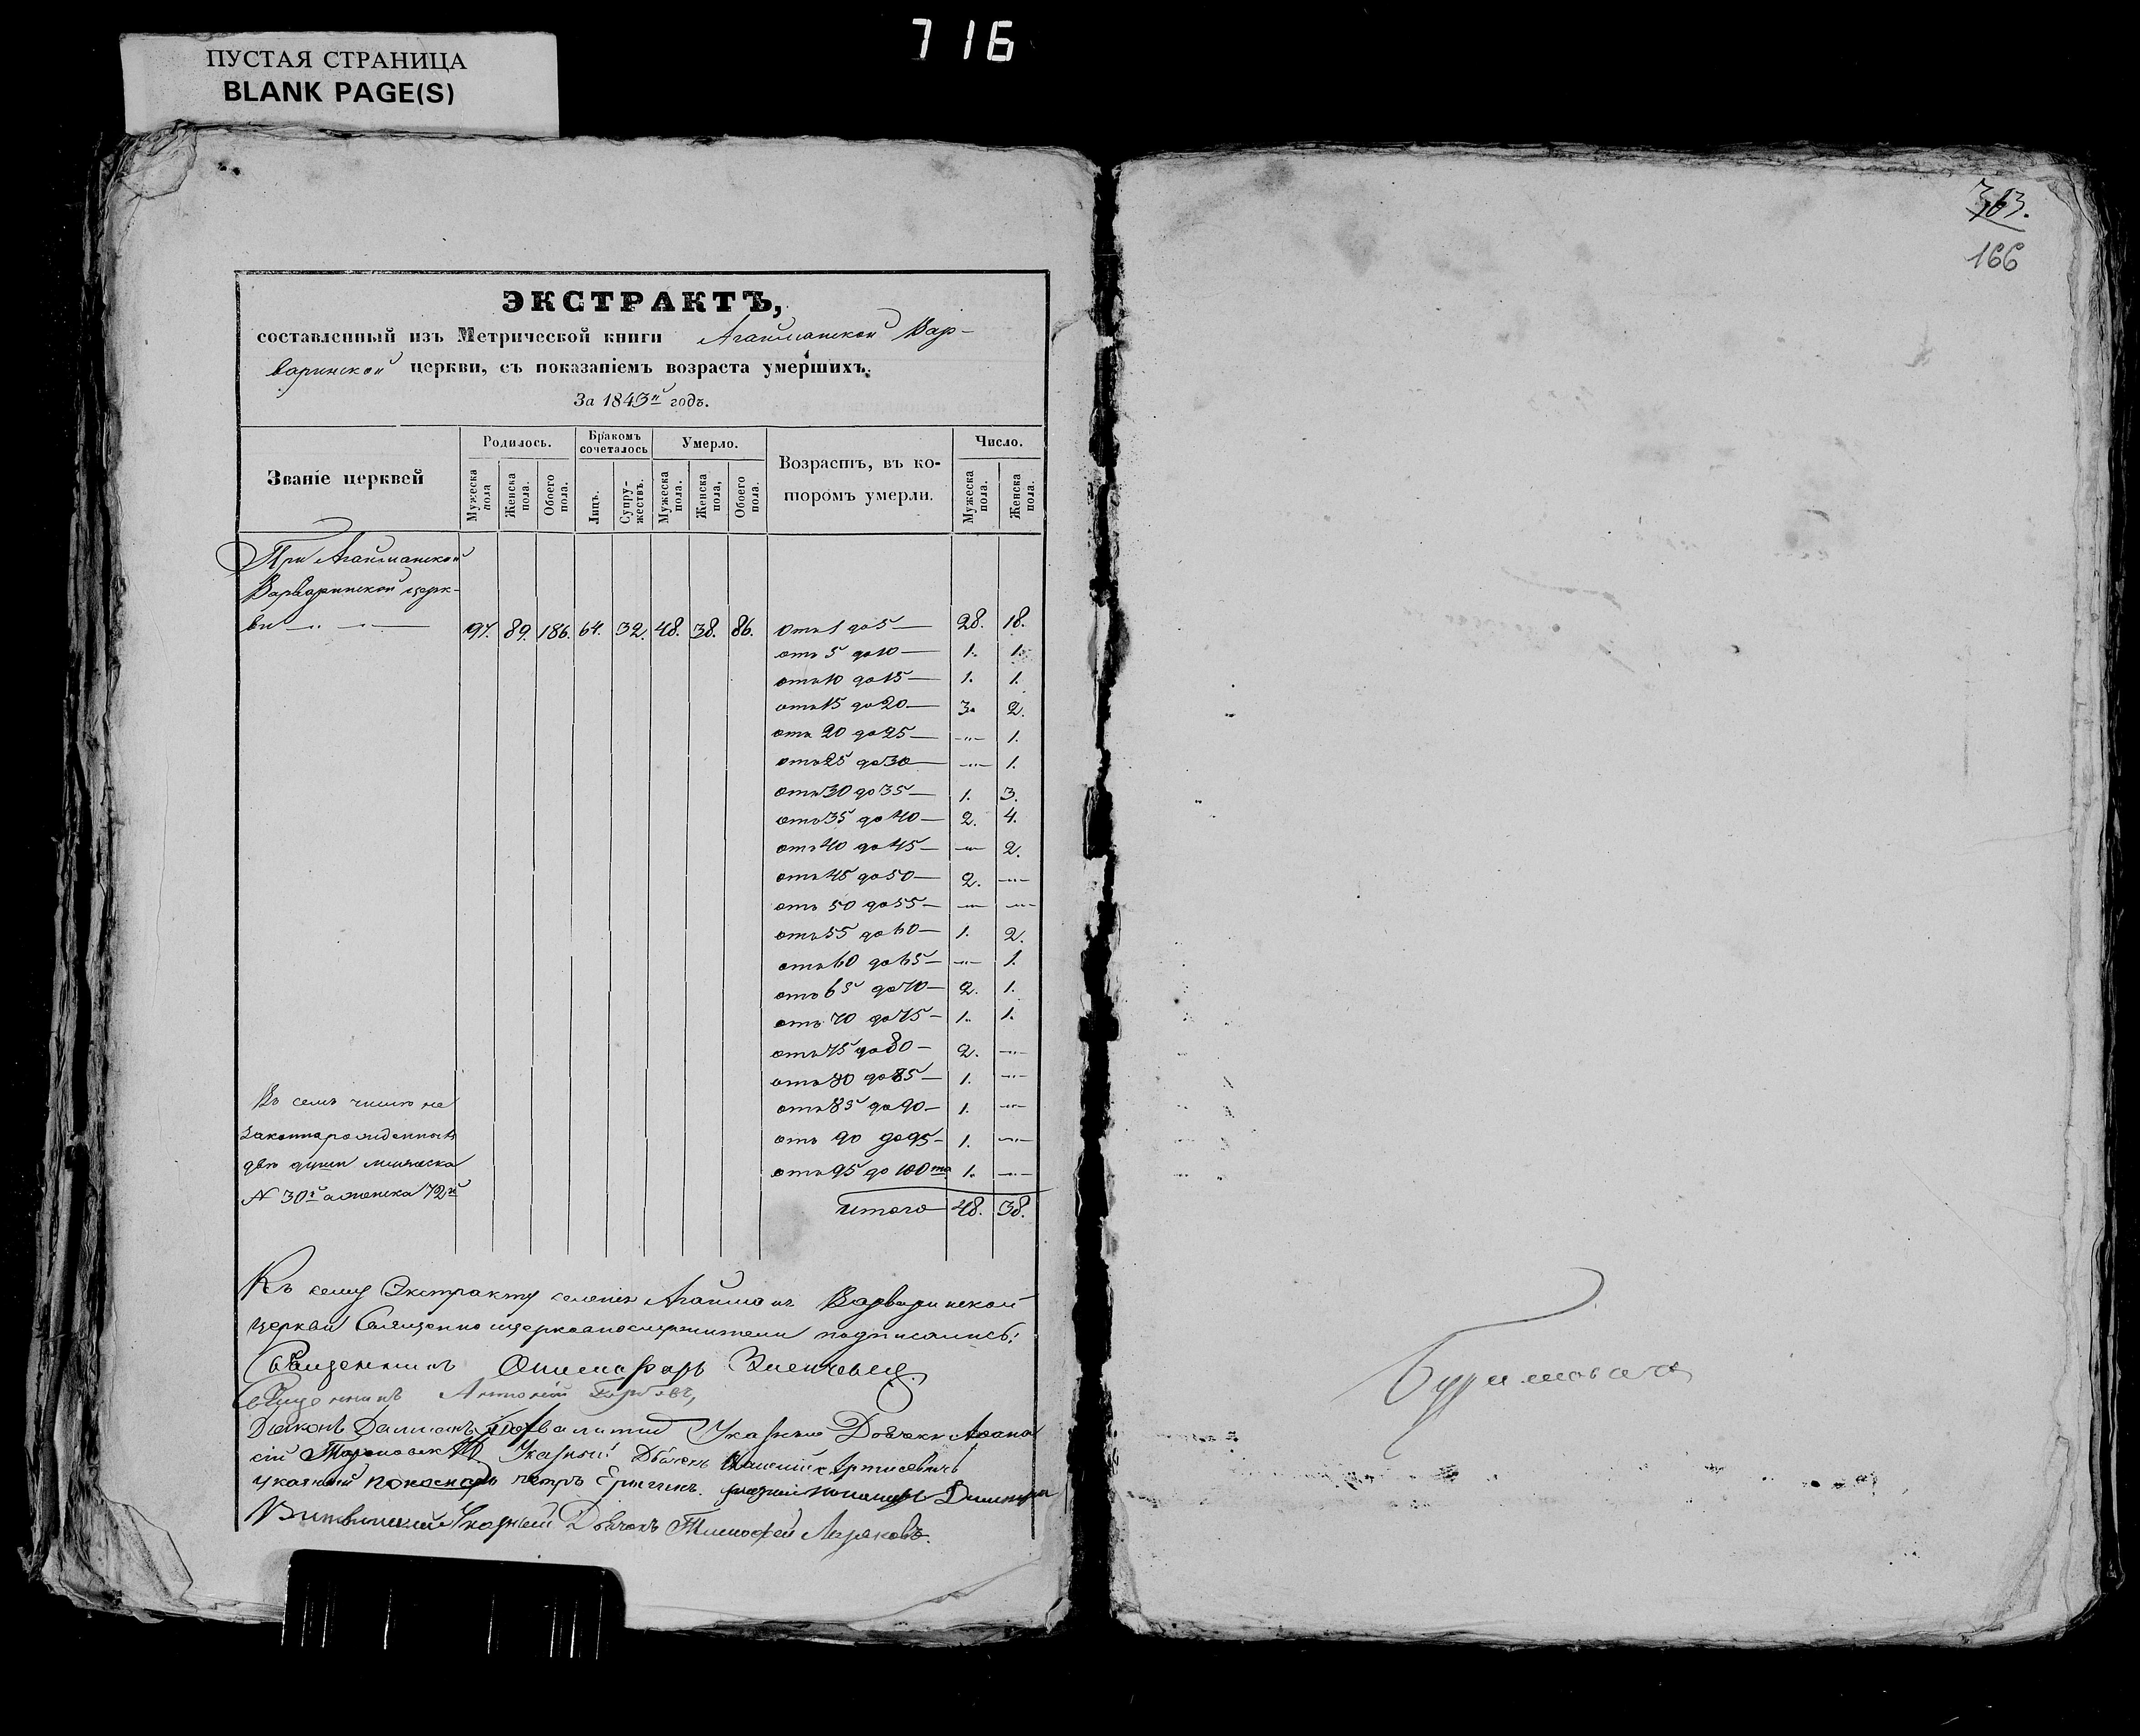 716
ПУСТАЯ СТРАНИЦА
BLANK PAGE(S)
ЭКСТРАКТЪ,
составленный изъ Метрической книги Агайманской Вар-
варинской церкви, съ показаніемъ возраста умершихъ.
За 1843й годъ.
Званіе церквей
Родилось.
Мужеска пола
Женска пола.
Обоего пола.
Бракомъ сочеталось
Лицъ.
Супружествъ.
Умерло.
Мужеска пола.
Женска пола,
Обоего пола.
Возрастъ, въ ко-
торомъ умерли.
Число.
Мужеска пола.
Женска пола.
При Агайманской
Варваринской церк-
ви 97. 89. 186. 64. 32. 48. 38. 86. Отъ 1 до 5 — 28. 18.
отъ 5 до 10 — 1. 1.
отъ 10 до 15 — 1. 1.
отъ 15 до 20 — 3. 2.
отъ 20 до 25 — „ 1.
отъ 25 до 30 — „ 1.
отъ 30 до 35 — 1. 3.
отъ 35 до 40 — 2. 4.
отъ 40 до 45 — „ 2.
отъ 45 до 50 — 2. „
отъ 50 до 55 — „ „
отъ 55 до 60 — 1. 2.
отъ 60 до 65 — „ 1.
отъ 65 до 70 — 2. 1.
отъ 70 до 75 — 1. 1.
отъ 75 до 80 — 2. „
отъ 80 до 85 — 1. „
отъ 85 до 90 — 1. „
отъ 90 до 95 — 1. „
отъ 95 до 100та 1. „
итого 48. 38.
Въ семъ числѣ не
законнорожденныхъ
двѣ души мужеска
N 30й а женска 72й
Къ сему Экстракту селенія Агайманъ Варваринской
церкви Священно и церковнослужители подписались:
Священникъ
Священникъ Антоній
Діаконъ Даміанъ Указный Дьячекъ Афана-
сій Указный Дьячекъ
указный пономарь петръ пономарь Димитрій
Указный Дьячекъ Тимофей
363.
166